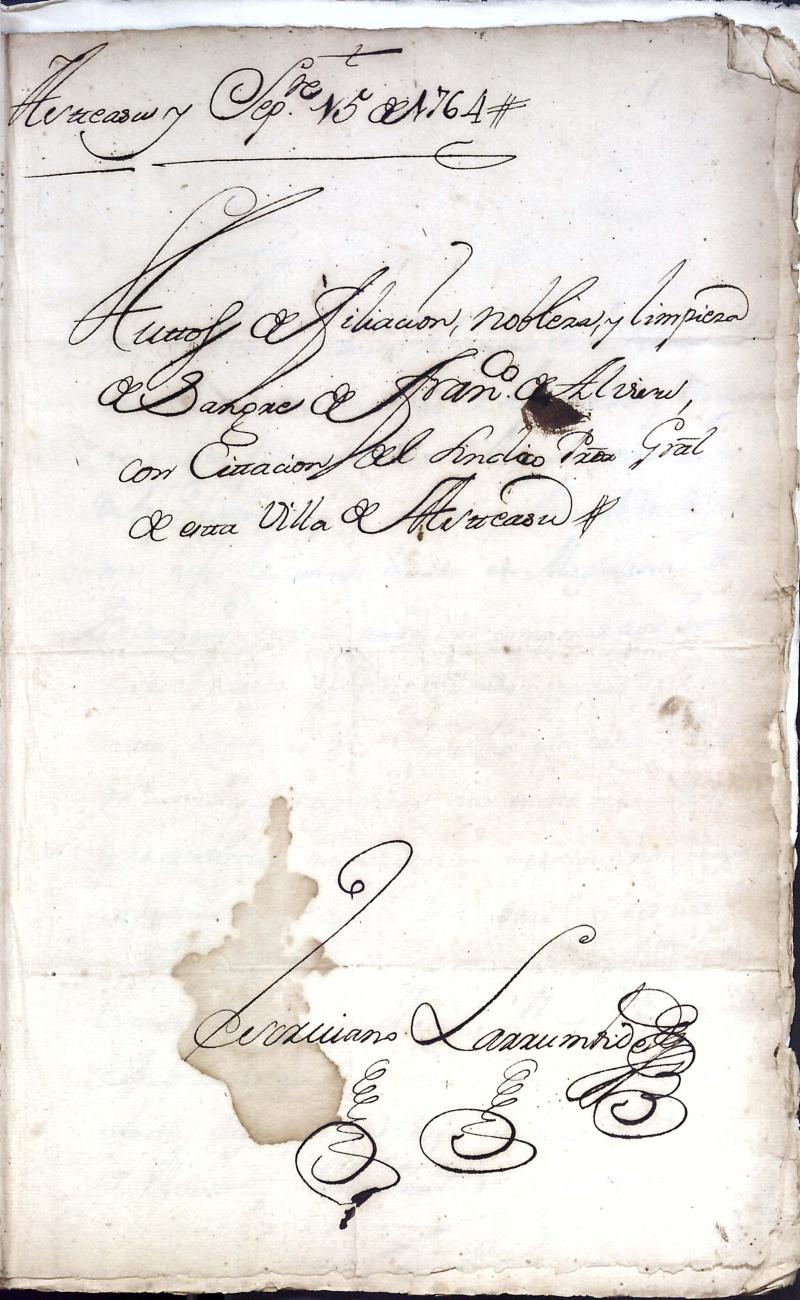 Asteasu y Sepbre 15 de 1764 #
Auttos de Filiacion, nobleza, y limpieza
de Sangre de Franco de Alviru,
con Cittacion del Sindico Pror Gral
de estta Villa de Asteasu #
Larrumbide